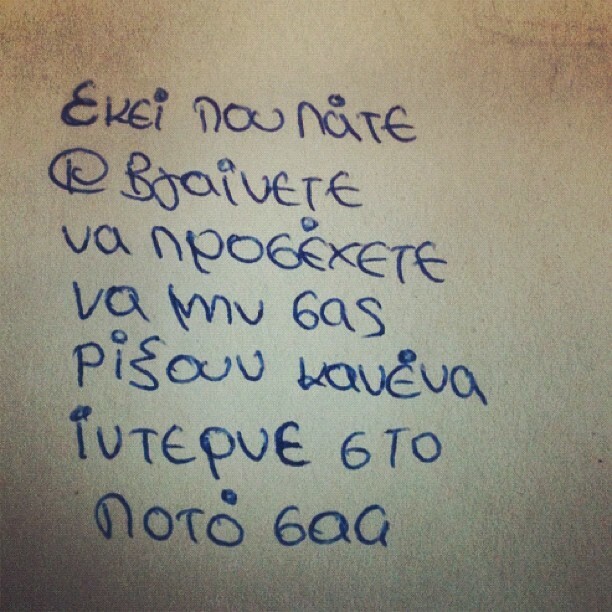 Εκεί που πάτε
κ βγαίνετε
να προσέχετε
να μην σας
ρίξουν κανένα
ίντερνε στο
ποτό σας